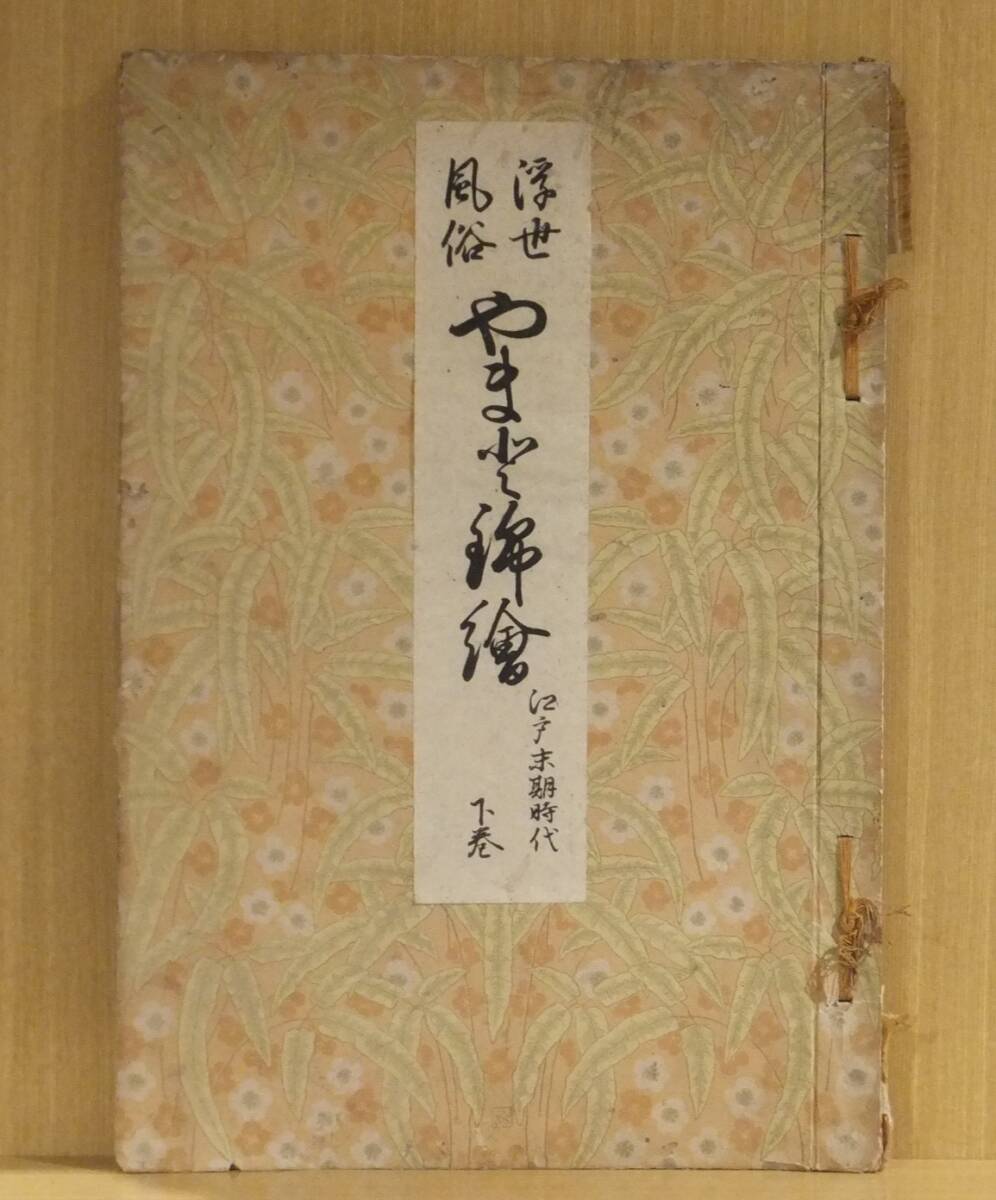 浮世
風俗
やまと錦繪
江戸末期時代
下巻